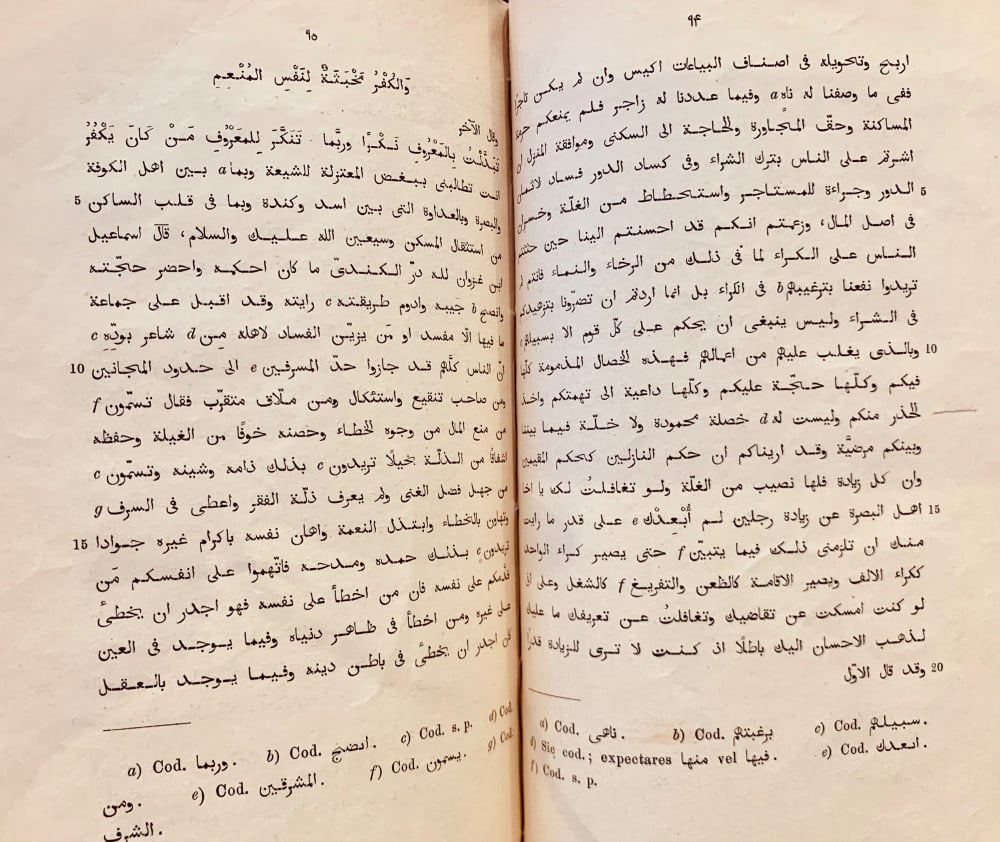 ٩۴
اربح وتحويله فى اصناف البياعات اكيس وان لم يكن تاجرا
ففى ما وصفنا له ناهٍ a وفيما عددنا له زاجر فلم يمنعكم
المساكنة وحقّ المجاورة والحاجة الى السكنى وموافقة المنزل ان
اشرتم على الناس بترك الشراء وفى كساد الدور فساد لاثمان
5 الدور وجراءة للمستاجر واستحطاط من الغلّة وخسران
فى اصل المال، وزعمتم انكم قد احسنتم الينا حين حثثتم
الناس على الكراء لما فى ذلك من الرخاء والنماء فانتم لم
تريدوا نفعنا بترغيبهم b فى الكراء بل انما اردتم ان تضرّونا بتزهيدكم
فى الشراء وليس ينبغى ان يحكم على كلّ قوم الا بسبيلهم c
10 وبالذى يغلب عليهم من اعمالهم فهذه الخصال المذمومة كلّها
فيكم وكلّها حجّة عليكم وكلّها داعية الى تهمتكم واخذ
الحذر منكم وليست له d خصلة محمودة ولا خلّة فيما بيننا
وبينكم مرضيَّة وقد اريناكم ان حكم النازلين كحكم المقيمين
وان كل زيادة فلها نصيب من الغلّة ولو تغافلتُ لك يا اخا
15 اهل البصرة عن زيادة رجلين لم أُبْعِدْك e على قدر ما رايت
منك ان تلزمنى ذلك فيما يتبيّن f حتى يصير كراء الواحد
ككراء الالف ويصير الاقامة كالظعن والتفريغ f كالشغل وعلى انى
لو كنت امسكت عن تقاضيك وتغافلتُ عن تعريفك ما عليك
لذهب الاحسان اليك باطلًا اذ كنت لا ترى للزيادة قدرًا
20 وقد قال الاوّل
a) Cod. ناهى. b) Cod. برغبتهم c) Cod. سبيلهم.
d) Sic cod.; expectares منها vel فيها. e) Cod. ابعدك.
f) Cod. s. p.
٩٥
وَالكُفْرُ مَخْبَثَةٌ لِنَفْسِ المُنْعِمِ
وقال الآخر
تَبَدَّلْتُ بِالمَعْرُوفِ نَكْرًا وربَّما تَنَكَّرَ لِلمَعْرُوفِ مَنْ كَانَ يَكْفُرُ
انت تطالبنى ببغض المعتزلة للشيعة وبما a بين اهل الكوفة
5 والبصرة وبالعداوة التى بين اسد وكندة وبما فى قلب الساكن
من استثقال المسكن وسيعين الله عليك والسلام، قال اسماعيل
ابن غزوان لله درّ الكندىّ ما كان احكمه واحضر حجّته
وانصح b جيبه وادوم طريقته c رايته وقد اقبل على جماعة
ما فيها الّا مفسد او مَن يزيّن الفساد لاهله مِن d شاعر بودّه c
10 انّ الناس كلّهم قد جازوا حدّ المسرفين e الى حدود المجانين
ومن صاحب تنقيع واستئكال ومن ملّاف متقرّب فقال تسمّون f
من منع المال من وجوه الخطاء وحصنه خوفًا من الغيلة وحفظه
اشفاقًا من الذلّة بخيلًا تريدون c بذلك ذامه وشينه وتسمّون c
من جهل فضل الغنى ولم يعرف ذلّة الفقر واعطى فى السرف g
15 وتهاون بالخطاء وابتذل النعمة واهان نفسه باكرام غيره جوادا
تريدون c بذلك حمده ومدحه فاتّهموا على انفسكم مَن
قدّمكم على نفسه فان من اخطأ على نفسه فهو اجدر ان يخطئ
على غيره ومن اخطأ فى ظاهر دنياه وفيما يوجد فى العين
كان اجدر ان يخطئ فى باطن دينه وفيما يوجد بالعقل
a) Cod. وربما. b) Cod. انصح. c) Cod. s. p. d) Cod.
ومن. e) Cod. المشرقين. f) Cod. يسمون. g) Cod.
الشرف.